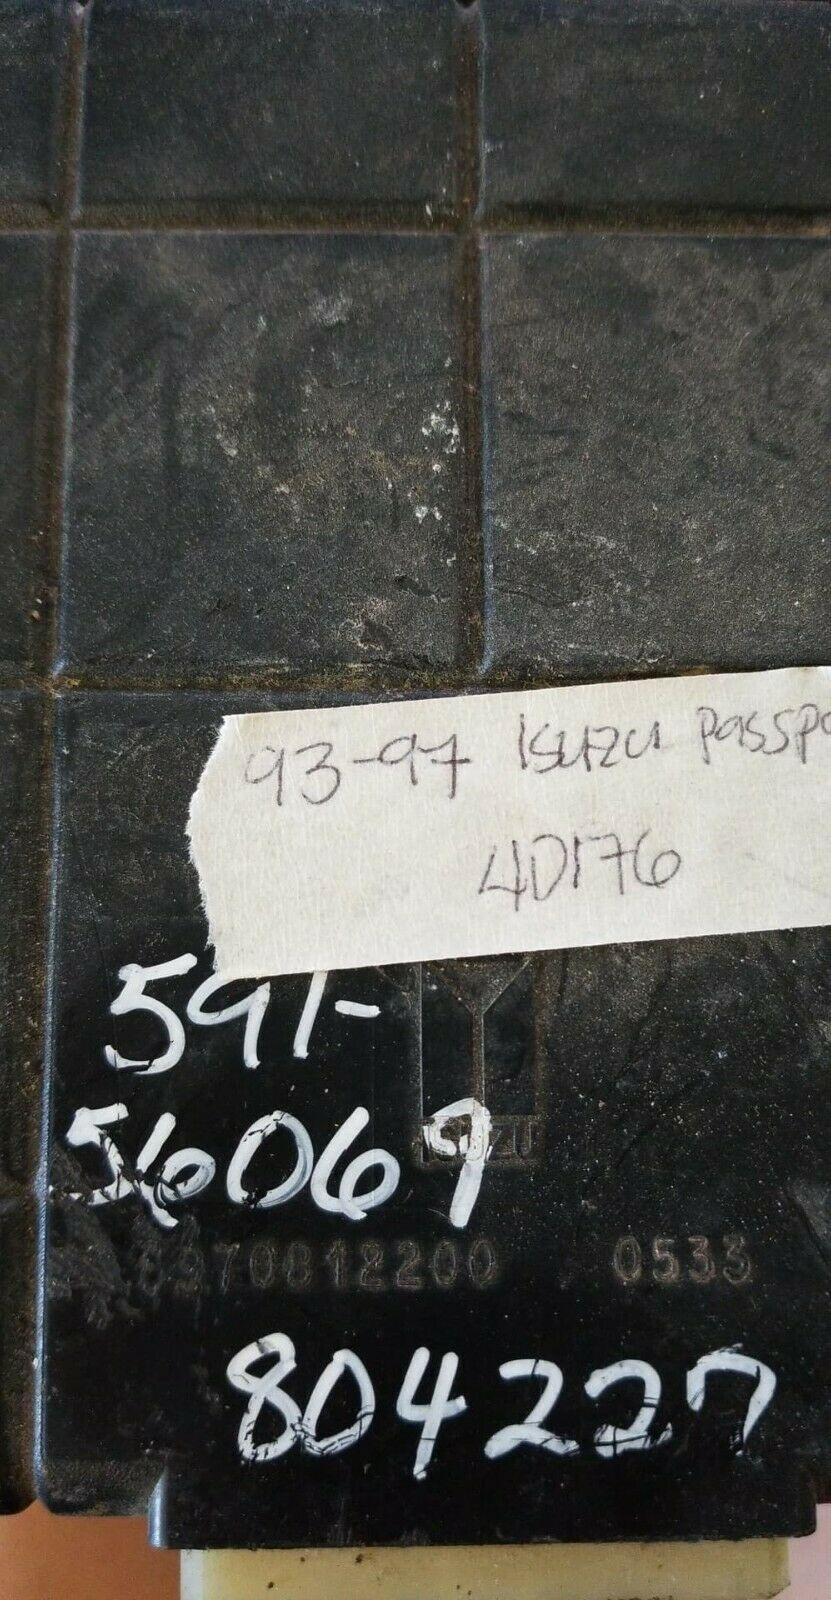 93-97 ISUZU passpo
4D176
591-
56069
ISUZU
8970812200 0533
804227